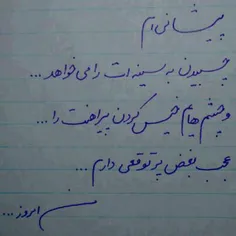 پیشانی ام
چسبیدن به سینه ات را می خواهد ...
و چشم هایم خیس کردن پیراهنت را ...
عجب بغض پر توقعی دارم ...
من امروز ...